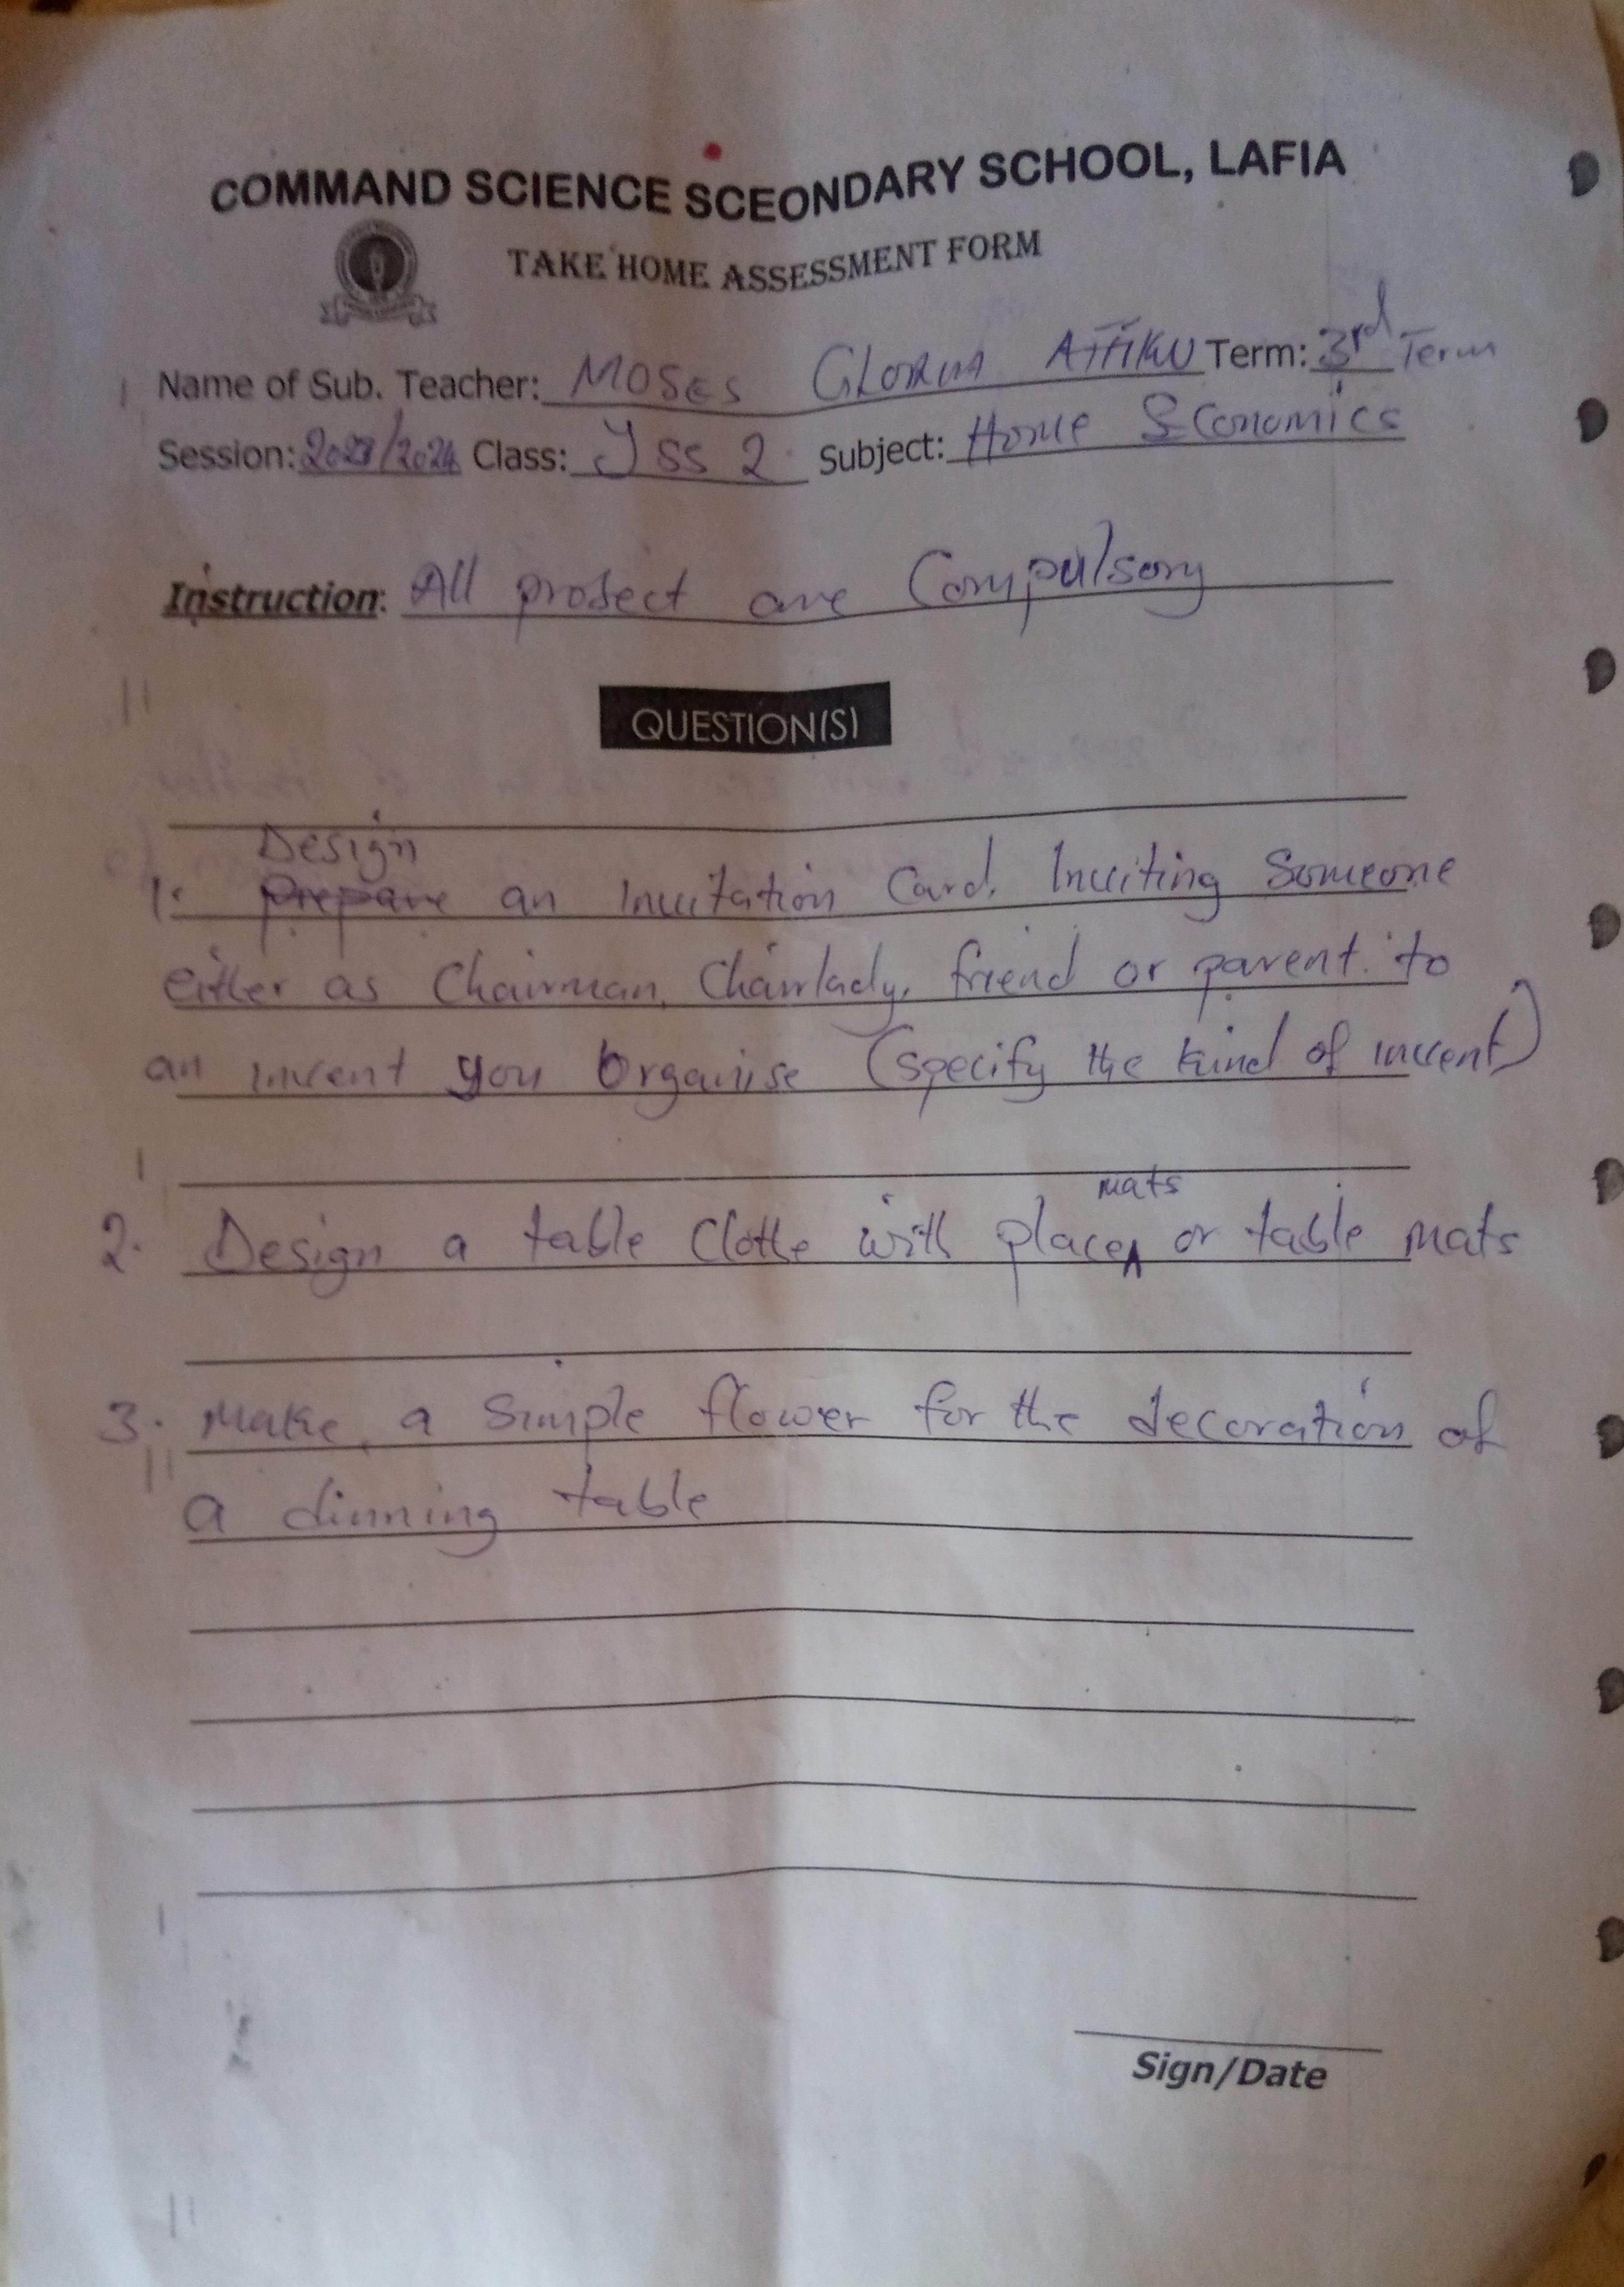 COMMAND SCIENCE SCEONDARY SCHOOL, LAFIA
TAKE HOME ASSESSMENT FORM
Name of Sub. Teacher: MOSES GLORIA ATTIKU Term: 3rd Term
Session: 2023/2024 Class: JSS 2 Subject: Home Economics
Instruction: All project are Compulsory
QUESTION(S)
Design
1. Prepare an Invitation Card. Inviting Someone
either as Chairman, Chairlady, friend or parent. to
an invent you Organise (specify the kind of invent)
mats
2. Design a table Clothe with place or table mats
3. Make a Simple flower for the decoration of
a dinning table
Sign/Date